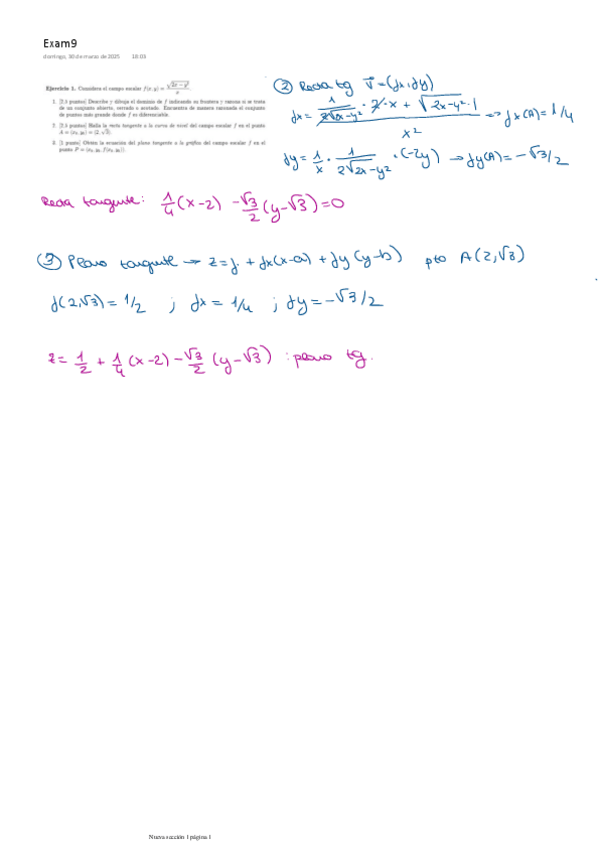 Exam9
domingo, 30 de marzo de 2025 18:03
Ejercicio 1. Considera el campo escalar f(x, y) = √(2x − y²) / x
1. [2,5 puntos] Describe y dibuja el dominio de f indicando su frontera y razona si se trata
de un conjunto abierto, cerrado o acotado. Encuentra de manera razonada el conjunto
de puntos más grande donde f es diferenciable.
2. [2,5 puntos] Halla la recta tangente a la curva de nivel del campo escalar f en el punto
A = (x₀, y₀) = (2, √3).
3. [1 punto] Obtén la ecuación del plano tangente a la gráfica del campo escalar f en el
punto P = (x₀, y₀, f(x₀, y₀)).
② Recta tg v⃗ = (fx, fy)
fx = (1/(2√(2x-y²)) · 2 · x + √(2x-y²) · 1) / x² => fx(A) = 1/4
fy = 1/x · 1/(2√(2x-y²)) · (-2y) → fy(A) = -√3/2
Recta tangente: 1/4 (x-2) - √3/2 (y-√3) = 0
③ Plano tangente → z = f + fx(x-a) + fy(y-b) pto A(2,√3)
f(2,√3) = 1/2 ; fx = 1/4 ; fy = -√3/2
z = 1/2 + 1/4 (x-2) - √3/2 (y-√3) : plano tg.
Nueva sección 1 página 1